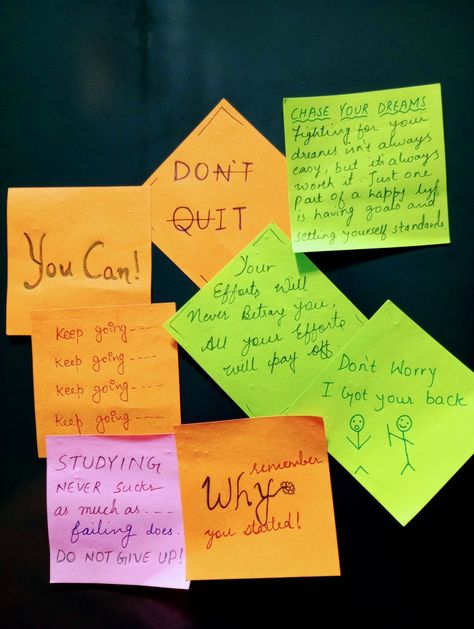 CHASE YOUR DREAMS
Fighting for your
dreams isn't always
easy, but it's always
worth it. Just one
part of a happy lyf
is having goals and
setting yourself standards.
DON'T
QUIT
You Can!
Your
Efforts Will
Never Betray you.
All your Efforts
will pay off.
Keep going----
Keep going----
Keep going----
Keep going----
Don't Worry
I Got your back
STUDYING
NEVER Sucks
as much as----
failing does.
DO NOT GIVE UP!
remember
Why
you started!